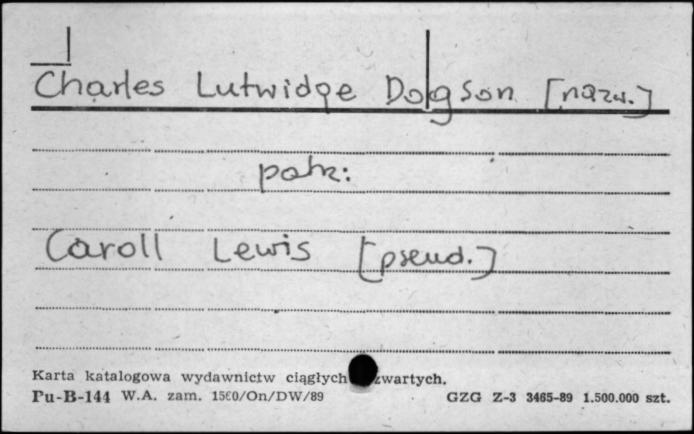 Charles Lutwidge Dogson [nazw.]
patrz:
Caroll Lewis [pseud.]
Karta katalogowa wydawnictw ciągłych zwartych.
Pu-B-144 W.A. zam. 1560/On/DW/89 GZG Z-3 3465-89 1.500.000 szt.